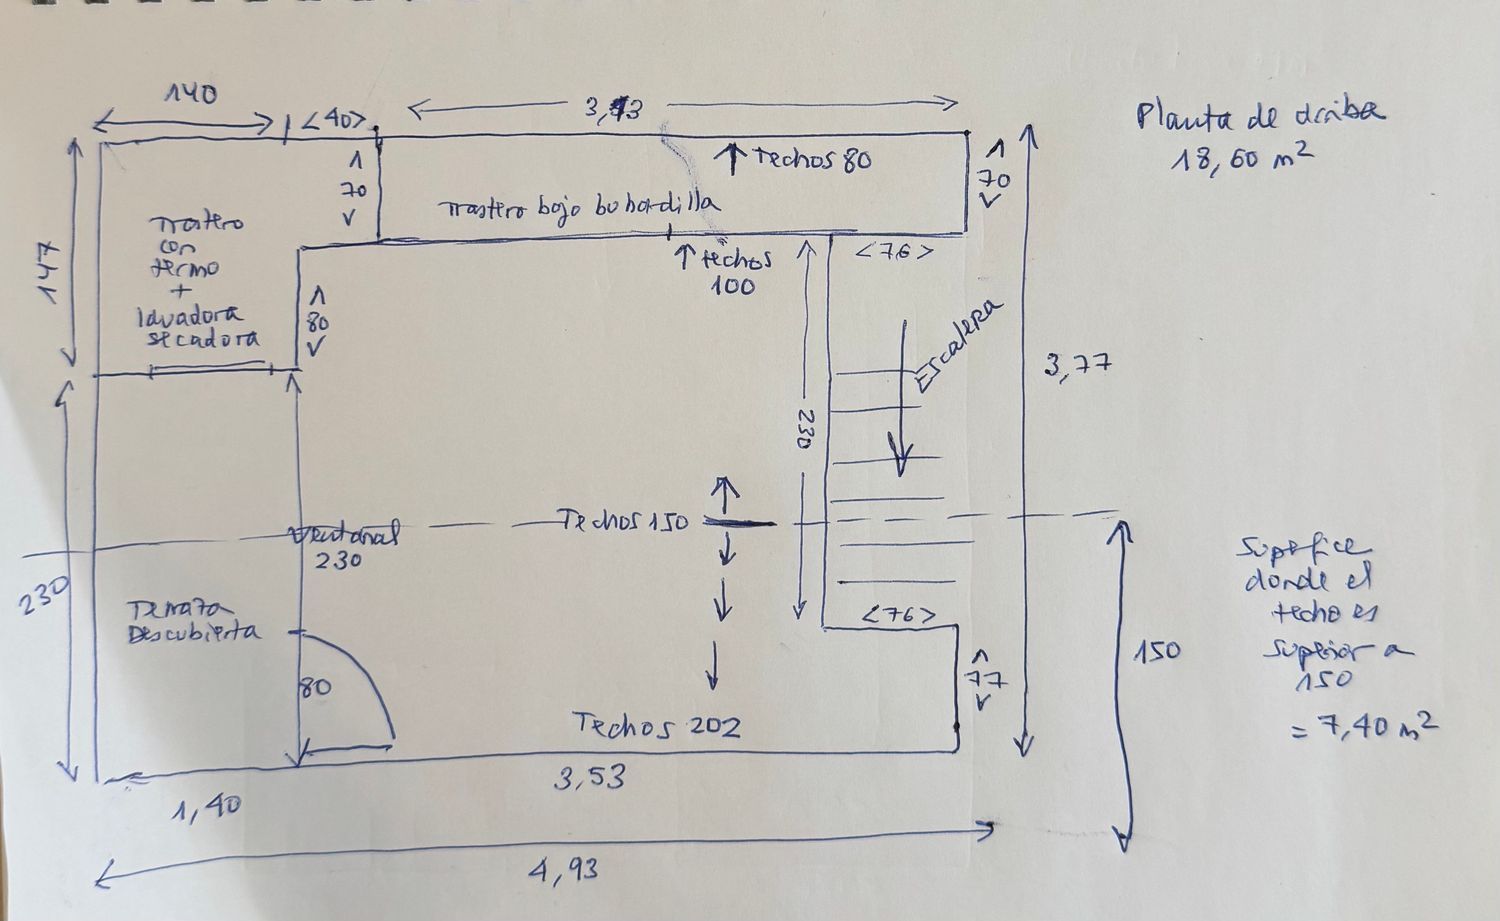 140
<40>
3,13
Planta de arriba
18,60 m²
Techos 80
70
70
Trastero bajo buhardilla
Trastero
con
termo
+
lavadora
secadora
147
80
techos
100
<76>
Escalera
3,77
230
Techos 150
Ventanal
230
230
Terraza
Descubierta
80
<76>
77
Techos 202
150
Superfice
donde el
techo es
superior a
150
= 7,40 m²
1,40
3,53
4,93